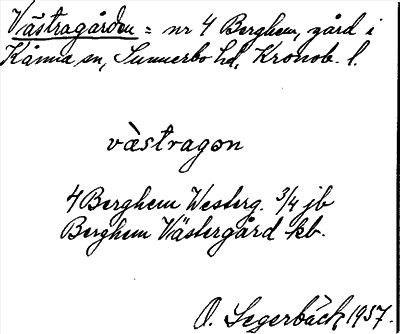 Västragården = nr 4 Berghem, gård i
Kånna sn, Sunnerbo hd, Kronob. l.
vàstragon
4 Berghem Westerg. 3/4 jb
Berghem Västergård kb.
O. Segerbäck 1957.